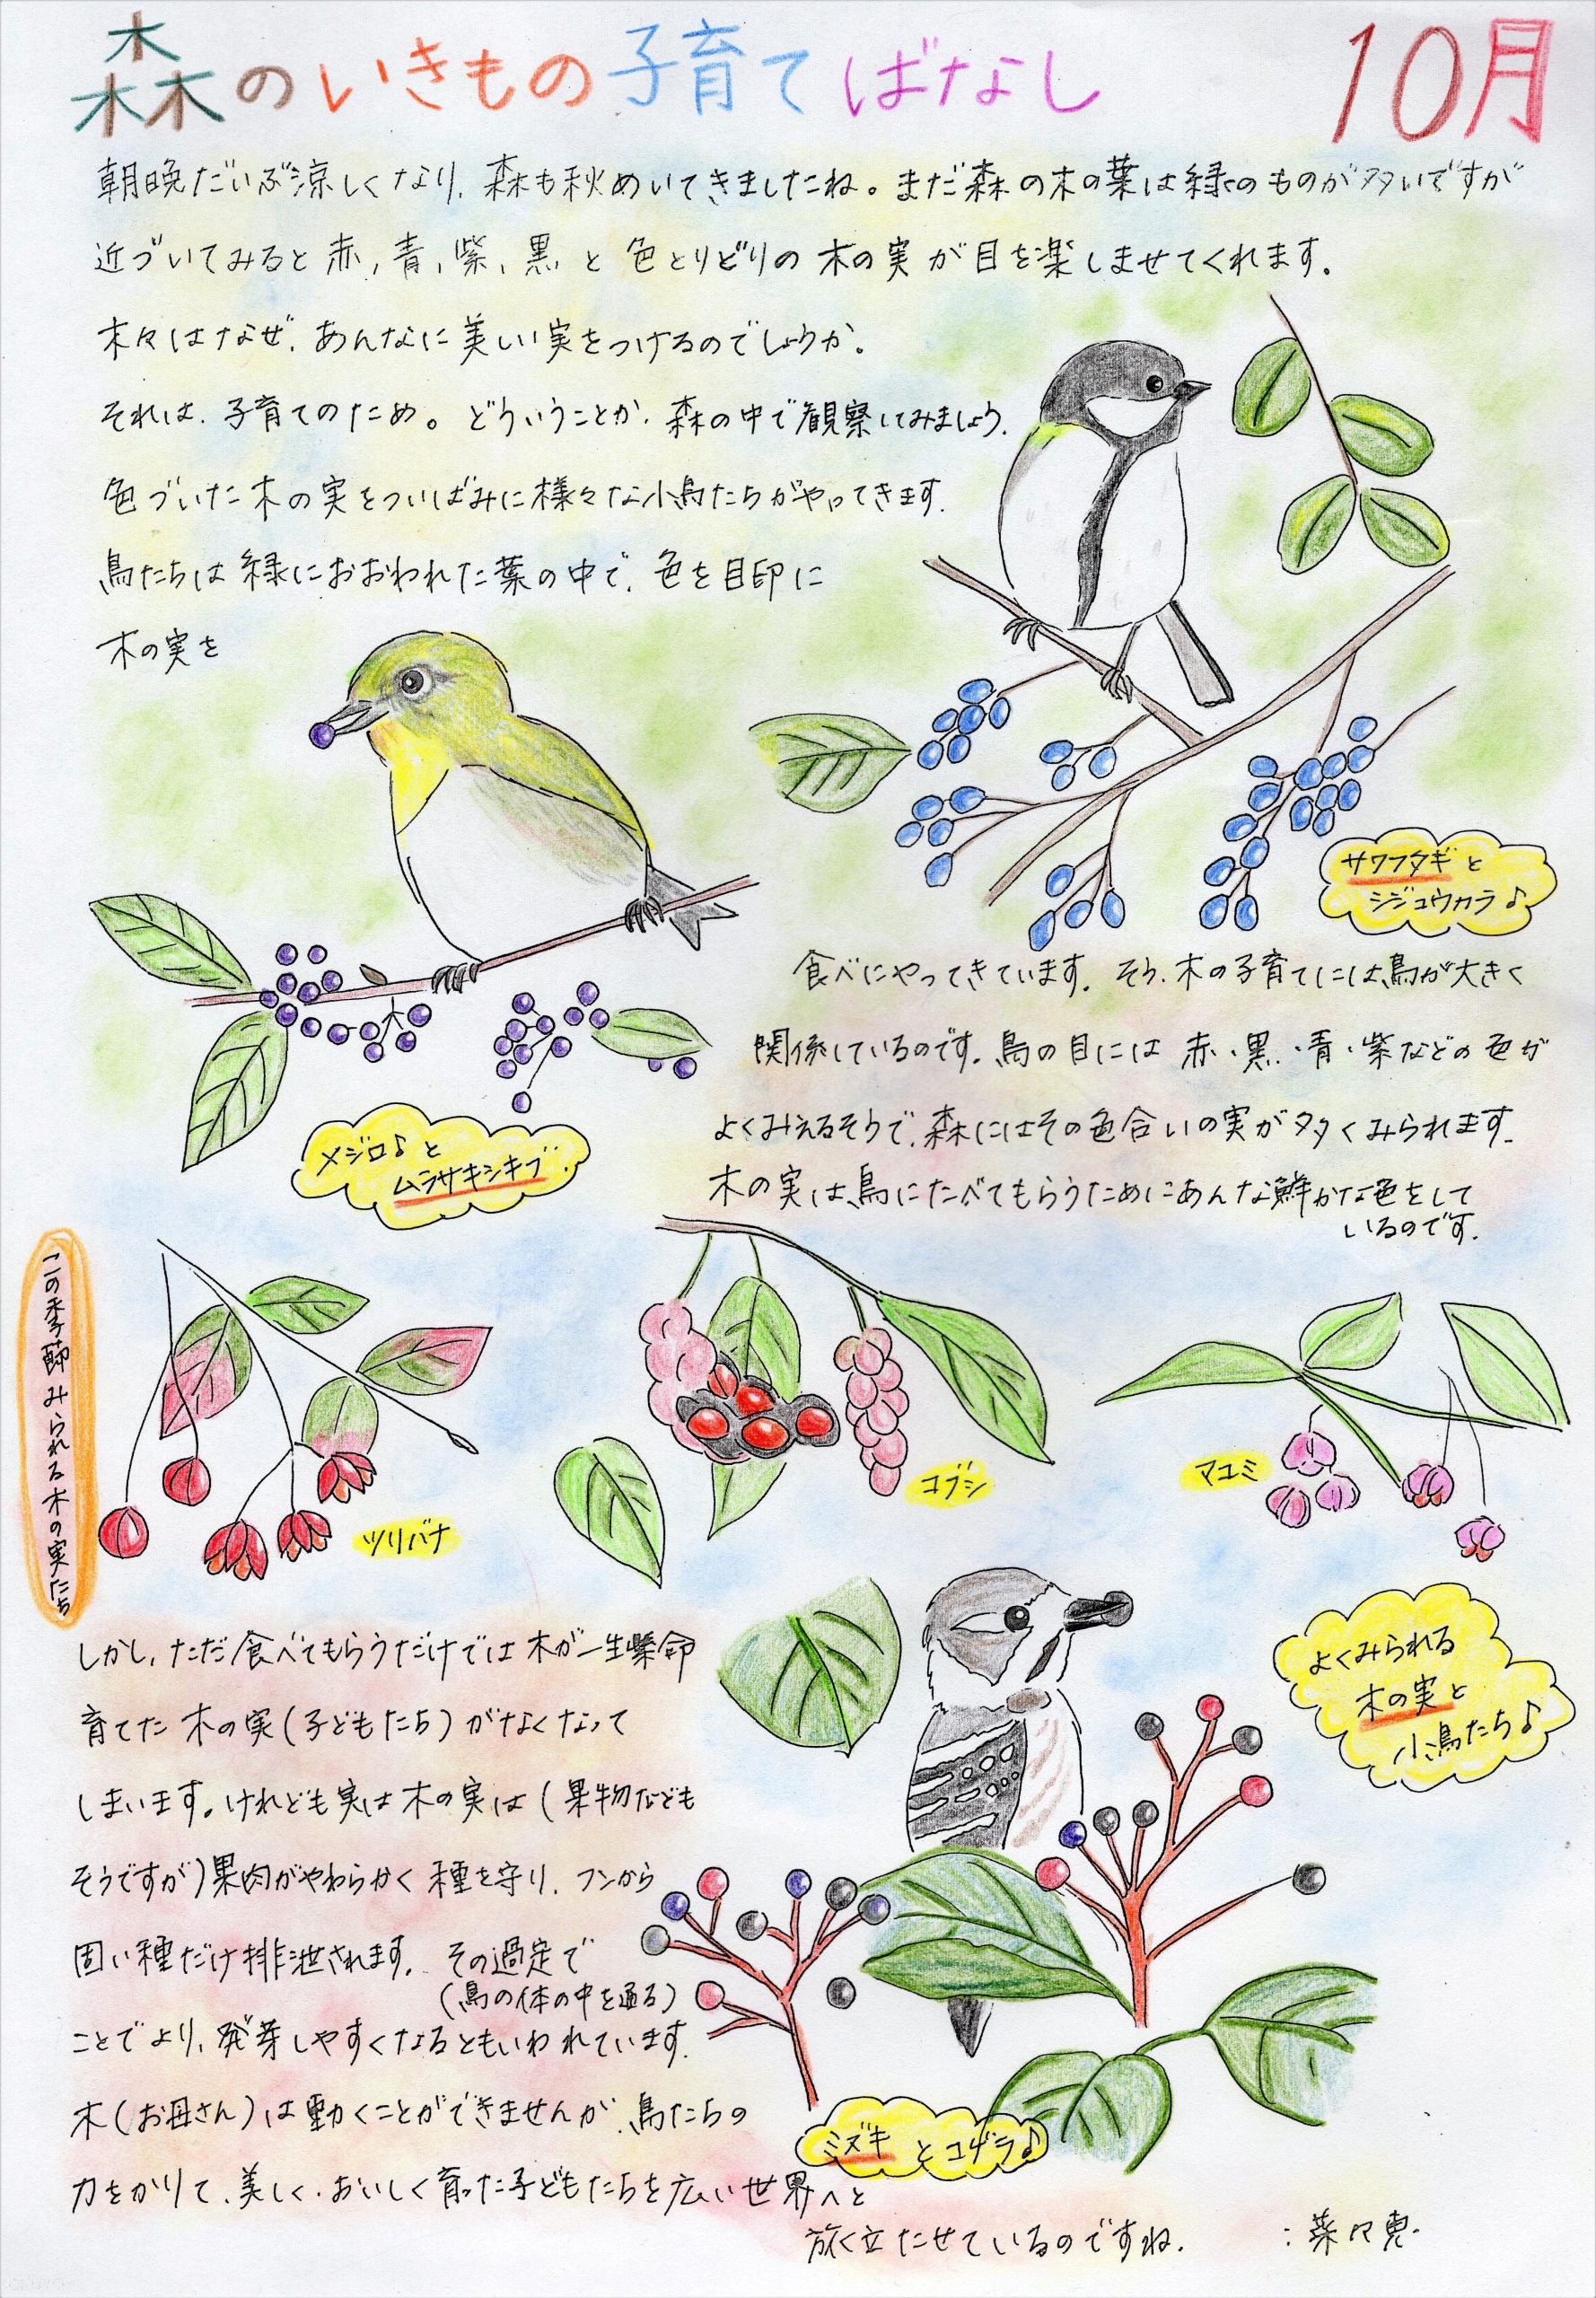 森のいきもの子育てばなし
10月
朝晩だいぶ涼しくなり、森も秋めいてきましたね。まだ森の木の葉は緑のものが多いですが
近づいてみると赤、青、紫、黒と色とりどりの木の実が目を楽しませてくれます。
木々はなぜ、あんなに美しい実をつけるのでしょうか。
それは、子育てのため。どういうことか、森の中で観察してみましょう。
色づいた木の実をついばみに様々な小鳥たちがやってきます。
鳥たちは緑におおわれた葉の中で、色を目印に
木の実を
サワフタギと
シジュウカラ♪
食べにやってきています。そう、木の子育てには鳥が大きく
関係しているのです。鳥の目には赤・黒・青・紫などの色が
よくみえるそうで、森にはその色合いの実が多くみられます。
木の実は、鳥にたべてもらうためにあんな鮮かな色をして
いるのです。
メジロ♪と
ムラサキシキブ
この季節みられる木の実たち
ツリバナ
コブシ
マユミ
しかし、ただ食べてもらうだけでは木が一生懸命
育てた木の実(子どもたち)がなくなって
しまいます。けれども実は木の実は(果物なども
そうですが)果肉がやわらかく種を守り、フンから
固い種だけ排泄されます。その過定で
(鳥の体の中を通る)
ことでより、発芽しやすくなるともいわれています。
木(お母さん)は動くことができませんが、鳥たちの
力をかりて、美しく・おいしく育った子どもたちを広い世界へと
旅立たせているのですね。
:菜々恵
よくみられる
木の実と
小鳥たち♪
ミズキとコゲラ♪